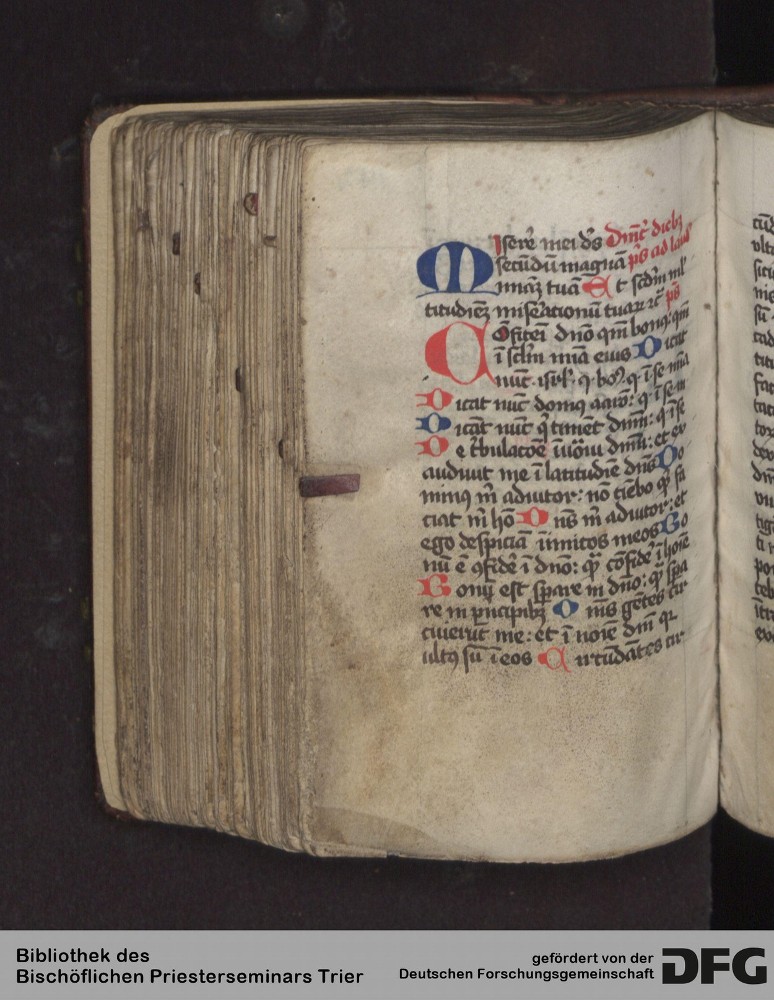 Miserē mei ds̄ Dn̄ic̄ dieb₃
secūdū magnā ps̄ ad laud̄
mīaꝫ tuā Et scd̄m ml̄
titudiēꝫ miserationū tuaꝝ ꝛc̄ ps̄
Cōfitei dn̄o qm̄ bonꝰ: qm̄
ī sclm̄ mīa eius Dicat
nūc isrl̄ q̄ boꝰ: q̄ ī se mīa
Dicat nūc domꝰ aarō: q̄ ī se m
Dicāt nūc q̄ timēt dm̄: q̄ ī se
De t̄bulacōe īuōui dm̄: et ex
audiuit me ī latitudīe dn̄s Do
minus m̄ adiutor: nō tīebo qͥ fa
ciat m̄ hō Dn̄s m̄ adiutor: et
ego despiciā īimicos meos Bo
nū ē ꝯfidē ī dn̄o: qͣ cōfidē ī hoīe
Bonū est sperare in dn̄o: qͣ spa
re in pͥncipibꝫ Om̄s gētes cir
cuierūt me: et ī noīe dn̄i qꝛ
ultꝰ sū ī eos Circūdātes cir
Bibliothek des
Bischöflichen Priesterseminars Trier
gefördert von der
Deutschen Forschungsgemeinschaft
DFG